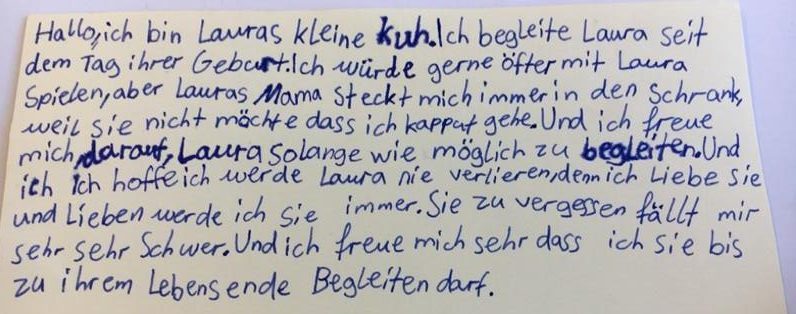 Hallo, ich bin Lauras kleine Kuh. Ich begleite Laura seit
dem Tag ihrer Geburt. Ich würde gerne öfter mit Laura
Spielen, aber Lauras Mama steckt mich immer in den Schrank,
weil sie nicht möchte dass ich kapput gehe. Und ich freue
mich darauf, Laura solange wie möglich zu begleiten. Und
ich Ich hoffe ich werde Laura nie verlieren, denn ich Liebe sie
und Lieben werde ich sie immer. Sie zu vergessen fällt mir
sehr sehr Schwer. Und ich freue mich sehr dass ich sie bis
zu ihrem Lebensende Begleiten darf.